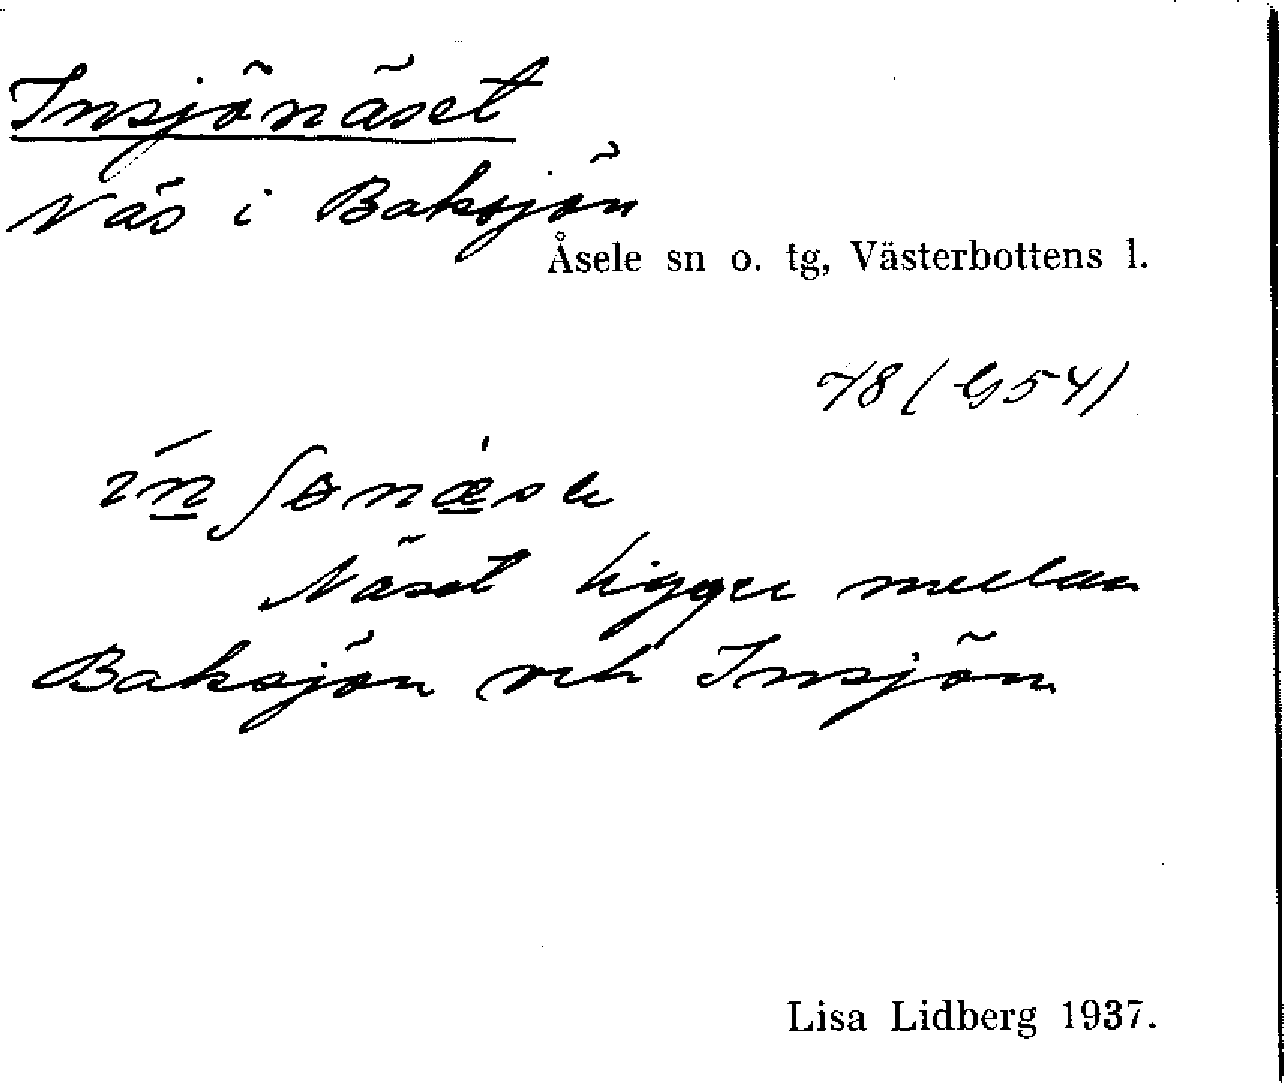 Insjönäset
Näs i Baksjön
Åsele sn o. tg, Västerbottens l.
78 (G54)
Näset ligger mellan
Baksjön och Insjön
Lisa Lidberg 1937.